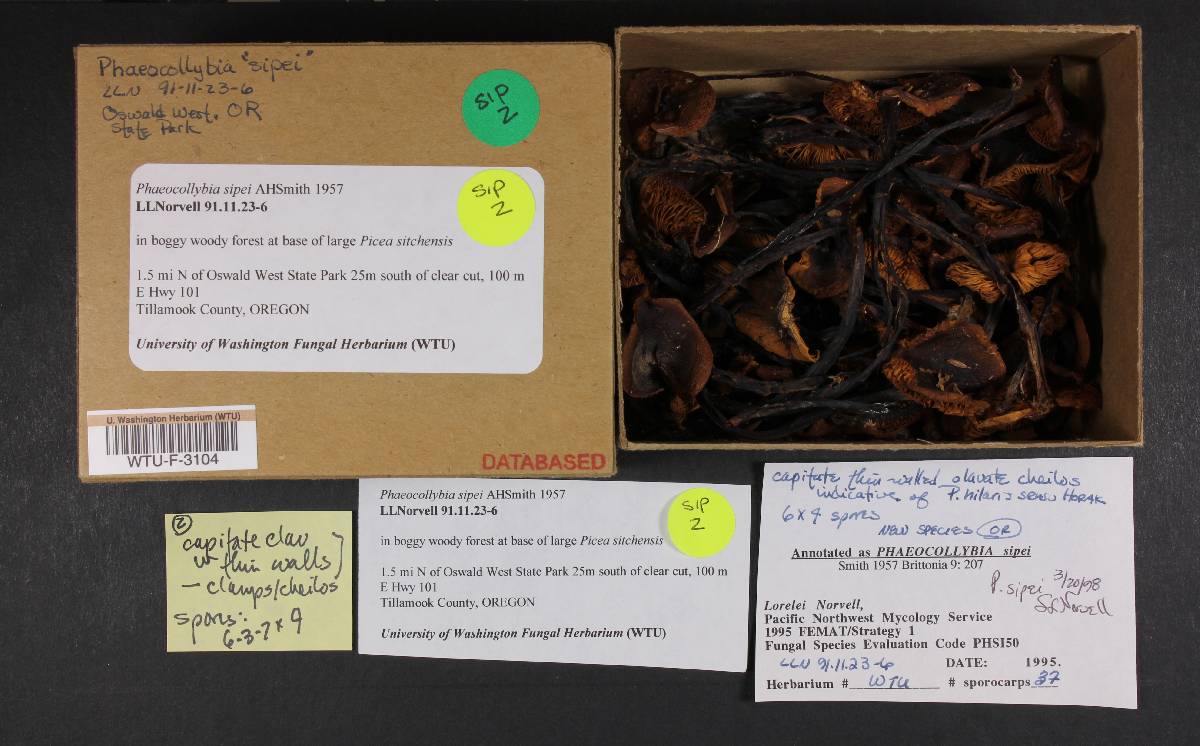 Phaeocollybia "sipei"
LLN 91-11-23-6
Oswald West. OR
State Park
SIP
2
Phaeocollybia sipei AHSmith 1957
LLNorvell 91.11.23-6
SIP
2
in boggy woody forest at base of large Picea sitchensis
1.5 mi N of Oswald West State Park 25m south of clear cut, 100 m
E Hwy 101
Tillamook County, OREGON
University of Washington Fungal Herbarium (WTU)
U. Washington Herbarium (WTU)
WTU-F-3104
DATABASED
2
capitate clav
w thin walls
– clamps/cheilos
spores:
6-3-7 x 9
Phaeocollybia sipei AHSmith 1957
LLNorvell 91.11.23-6
SIP
2
in boggy woody forest at base of large Picea sitchensis
1.5 mi N of Oswald West State Park 25m south of clear cut, 100 m
E Hwy 101
Tillamook County, OREGON
University of Washington Fungal Herbarium (WTU)
capitate thin walled clavate cheilos
indicative of P. hilaris sensu Horak
6 x 9 spores
NEW SPECIES OR
Annotated as PHAEOCOLLYBIA sipei
Smith 1957 Brittonia 9: 207
P. sipei 3/20/98
LL Norvell
Lorelei Norvell,
Pacific Northwest Mycology Service
1995 FEMAT/Strategy 1
Fungal Species Evaluation Code PHSI50
LLN 91.11.23-6 DATE: 1995.
Herbarium # WTU # sporocarps 37